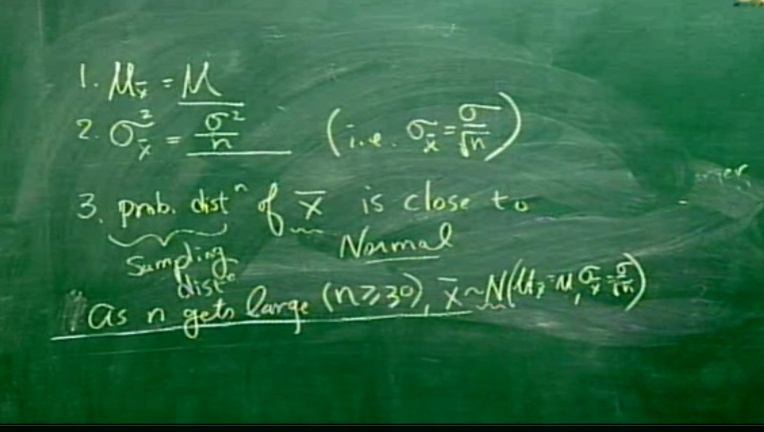 1. μx̄ = μ
2. σ²x̄ = σ²/n (i.e. σx̄ = σ/√n)
3. prob. distⁿ of x̄ is close to
Sampling distⁿ
Normal
as n gets large (n≥30), x̄ ~ N(μx̄ = μ, σx̄ = σ/√n)